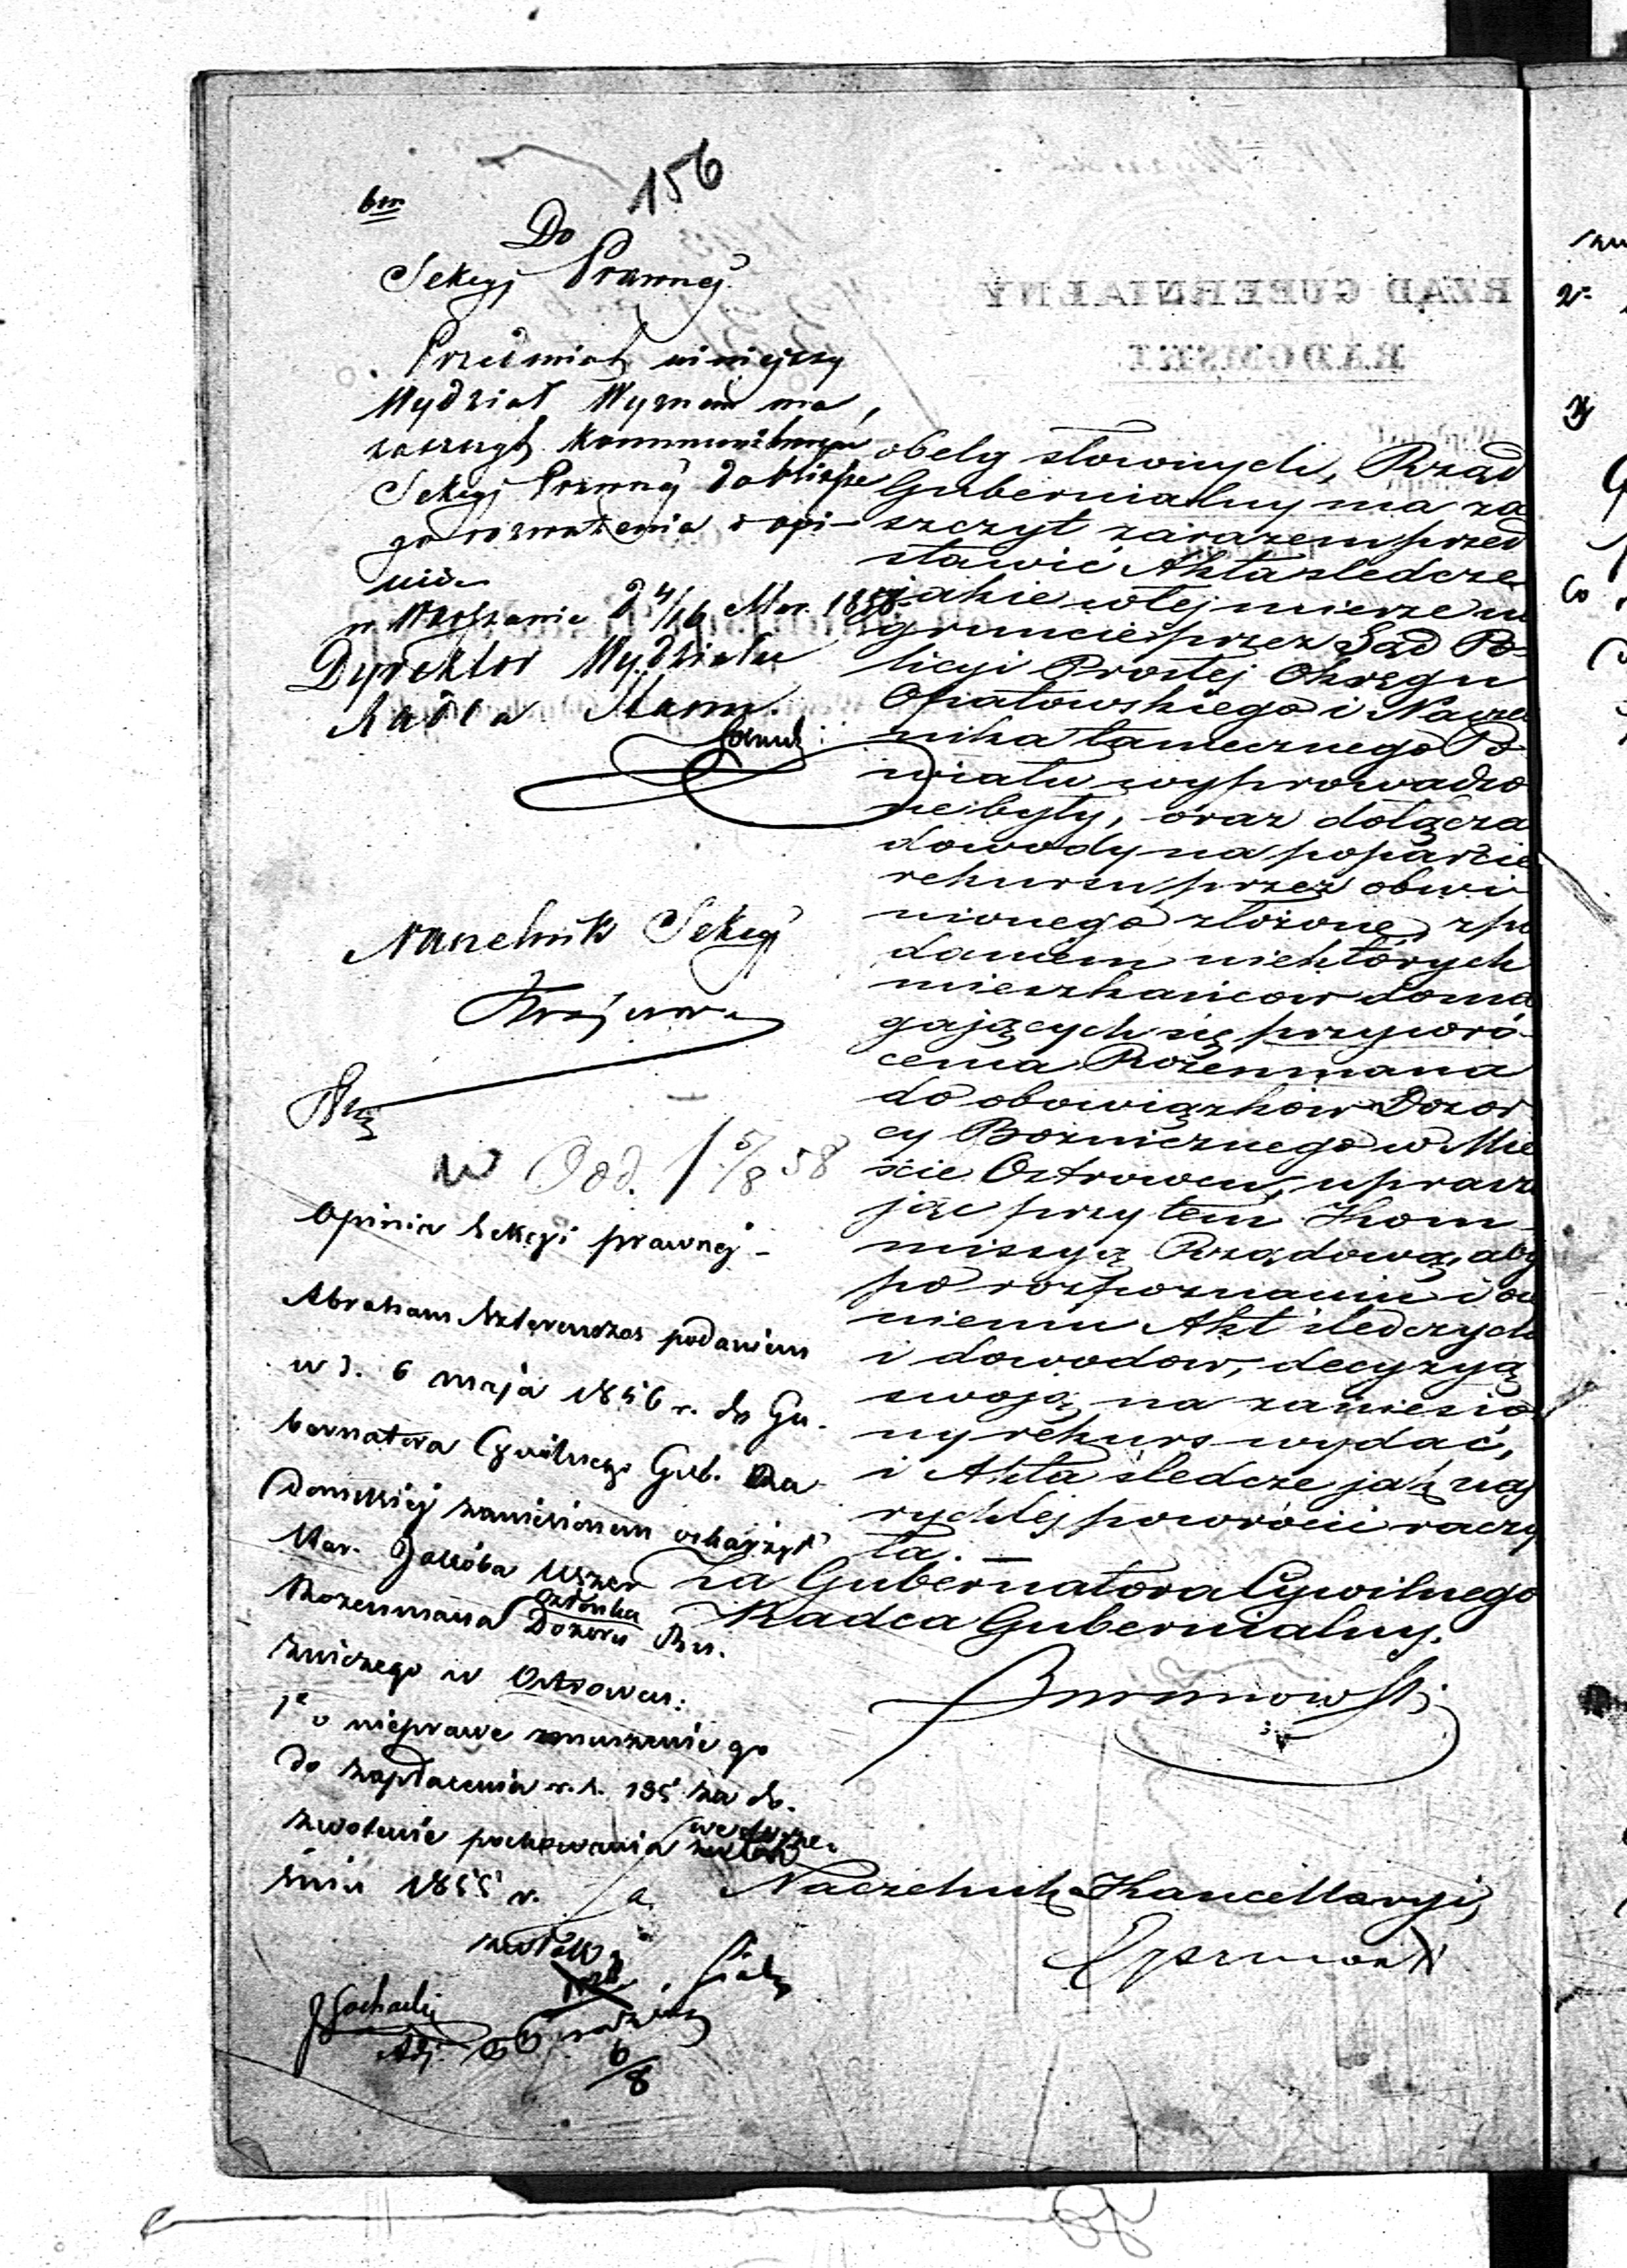 156
Do
Sekcyi Prawnej
Przedmiot niniejszy
Wydział Wyznań ma
zaszczyt kommunikować
Sekcyi Prawnej do bliższe
go rozważenia i opi-
nii
w Warszawie d 4/16 Mar. 1858
Dyrektor Wydziału
Radca Stanu
Naczelnik Sekcyi
5/8 58
Opinia Sekcyi prawnej -
Abraham podaniem
w d. 6 maja 1856 r. do Gu-
bernatora Cywilnego Gub. Ra
domskiej zaniesionem oskarżył
Star. Jakóba
Rozenmana Członka Dozoru Bu-
żniczego w Ostrowcu:
1e o nieprawe zmuszenie go
do zapłacenia r.s. 195 za do-
zwolenie pochowania we wrze-
śniu 1855 r.
zwłok
6/8
RZĄD GUBERNIALNY
RADOMSKI
obelg słownych, Rząd
Gubernialny ma za
szczyt zarazem przed
stawić Akta śledcze
jakie w tej mierze na
gruncie przez Sąd Po-
licyi Prostej Okręgu
Opatowskiego i Naczel
nika tamecznego Po-
wiatu wyprowadzo
ne były, oraz dołącza
dowody na poparcie
rekursu przez obwi
nionego złożone, z po
daniem niektórych
mieszkańców doma
gających się przywró-
cenia Rozenmana
do obowiązków Dozor
cy Bożniczego w Mie
ście Ostrowcu, uprasza
jąc przytem Kom-
missyą Rządową, aby
po rozpoznaniu i oce
nieniu Akt śledczych
i dowodow, decyzyą
swoją na zaniesio
ny rekurs wydać,
i Akta śledcze jak naj
rychlej powrócić raczy
ła. —
Za Gubernatora Cywilnego
Radca Gubernialny.
Naczelnik Kancellaryi